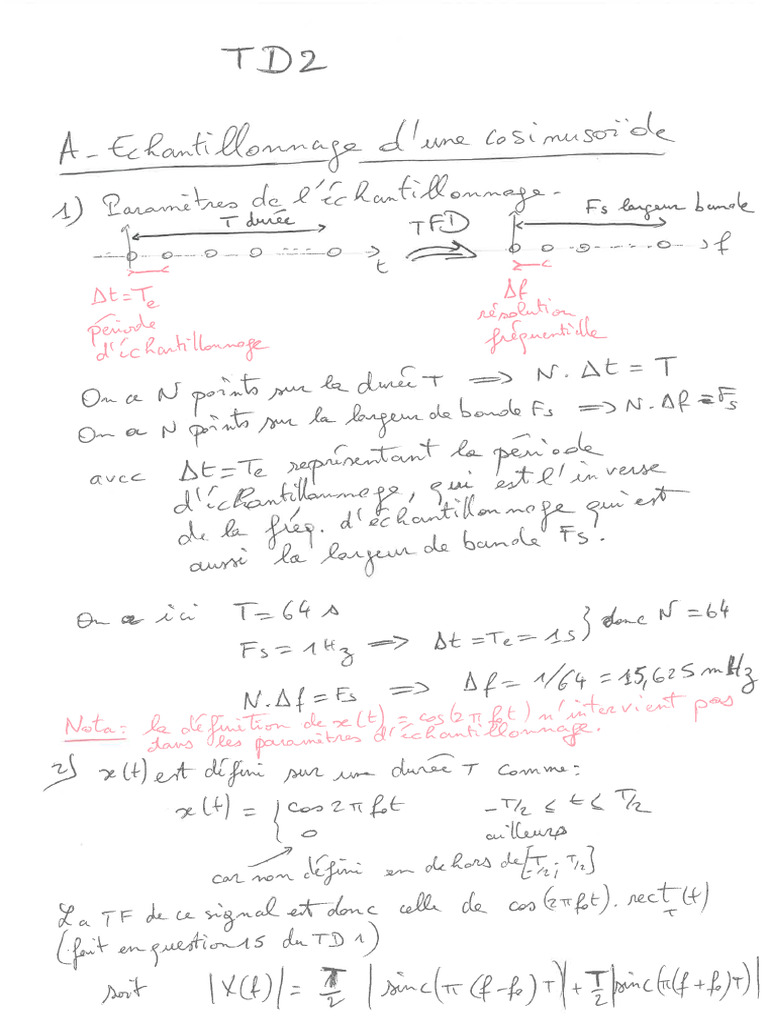 TD2
A - Echantillonnage d'une cosinusoïde
1) Paramètres de l'échantillonnage.
T durée TFD Fs largeur bande
t f
Δt = Te Δf
période résolution
d'échantillonnage fréquentielle
On a N points sur la durée T => N.Δt = T
On a N points sur la largeur de bande Fs => N.Δf = Fs
avec Δt = Te représentant la période
d'échantillonnage, qui est l'inverse
de la fréq. d'échantillonnage qui est
aussi la largeur de bande Fs.
On a ici T = 64 s
Fs = 1 Hz => Δt = Te = 1s } donc N = 64
N.Δf = Fs => Δf = 1/64 = 15,625 mHz
Nota: la définition de x(t) = cos(2πf₀t) n'intervient pas
dans les paramètres d'échantillonnage.
2) x(t) est défini sur une durée T comme:
x(t) = { cos 2πf₀t -T/2 ≤ t ≤ T/2
0 ailleurs
car non défini en dehors de [-T/2 ; T/2]
La TF de ce signal est donc celle de cos(2πf₀t).rect_T(t)
(fait en question 15 du TD1)
soit |X(f)| = T/2 |sinc(π(f-f₀)T)| + T/2 |sinc(π(f+f₀)T)|